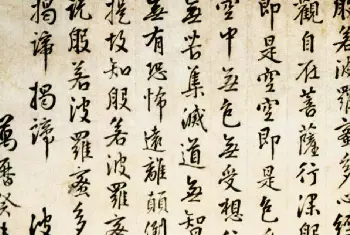 般若波羅蜜多心經
觀自在菩薩行深般
即是空空即是色
空中無色無受想
無苦集滅道無智
無有恐怖遠離顛倒
提故知般若波羅蜜
說般若波羅蜜多
揭諦揭諦 波
萬曆癸